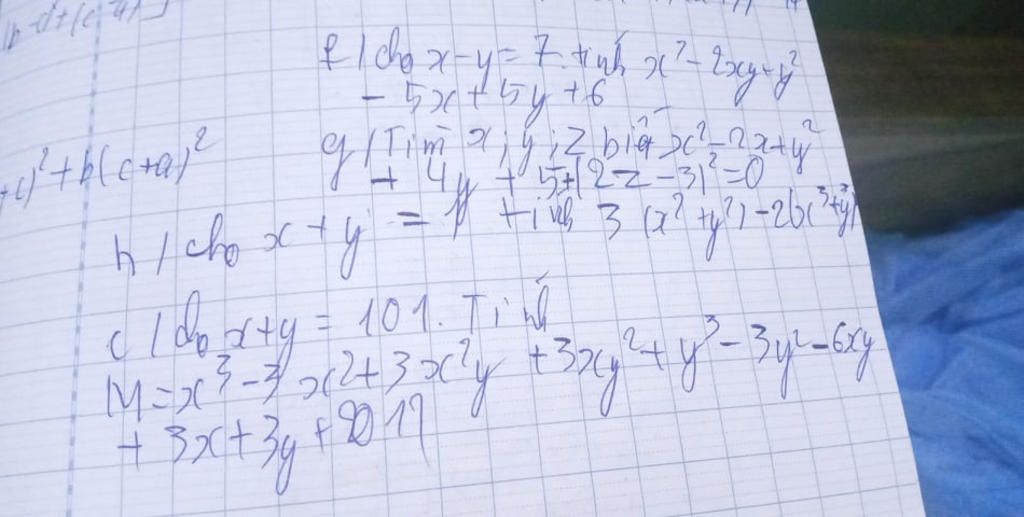 f / cho x - y = 7. tính x² - 2xy + y²
- 5x + 5y + 6
g / Tìm x; y; z biết x² - 2x + y²
+ 4y + 5 + (2z - 3)² = 0
+c)² + b(c+a)²
h / cho x + y = 1 tính 3 (x² + y²) - 2(x³+y³)
c / cho x+y = 101. Tính
M = x³ - 3x² + 3x²y + 3xy² + y³ - 3y² - 6xy
+ 3x + 3y + 2017